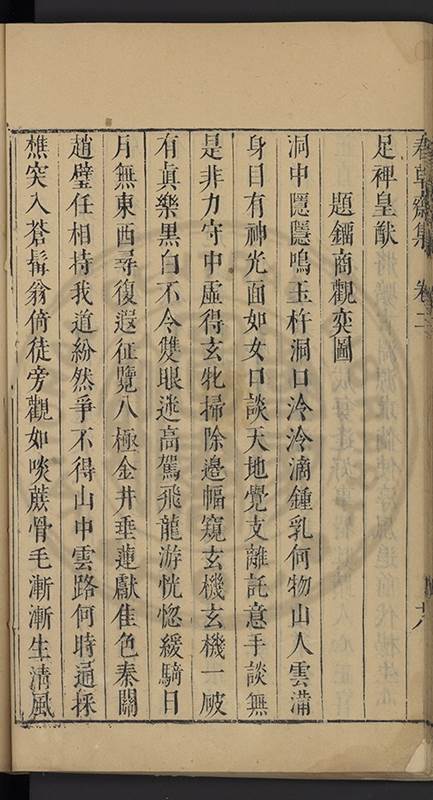 足裨皇猷
題鎦商觀奕圖
洞中隱隱鳴玉杵洞口泠泠滴鍾乳何物山人雲滿
身目有神光面如女口談天地覺支離託意手談無
是非力守中虛得玄牝掃除邊幅窺玄機玄機一破
有眞樂黑白不令雙眼迷高駕飛龍游恍惚緩騎日
月無東西尋復遐征覽八極金井垂蓮獻佳色秦關
趙璧任相持我道紛然爭不得山中雲路何時通採
樵突入蒼髯翁倚徒旁觀如啖蔗骨毛漸漸生清風